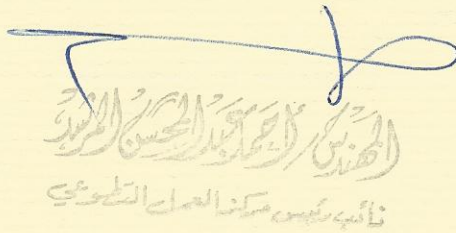 المهندس / أحمد عبد المحسن المرشد
نائب رئيس مركز العمل التطوعي